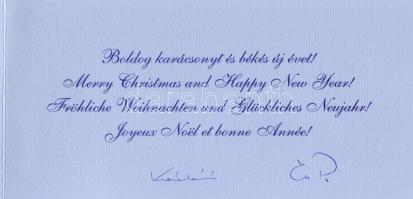 Boldog karácsonyt és békés új évet!
Merry Christmas and Happy New Year!
Fröhliche Weihnachten und Glückliches Neujahr!
Joyeux Noël et bonne Année!